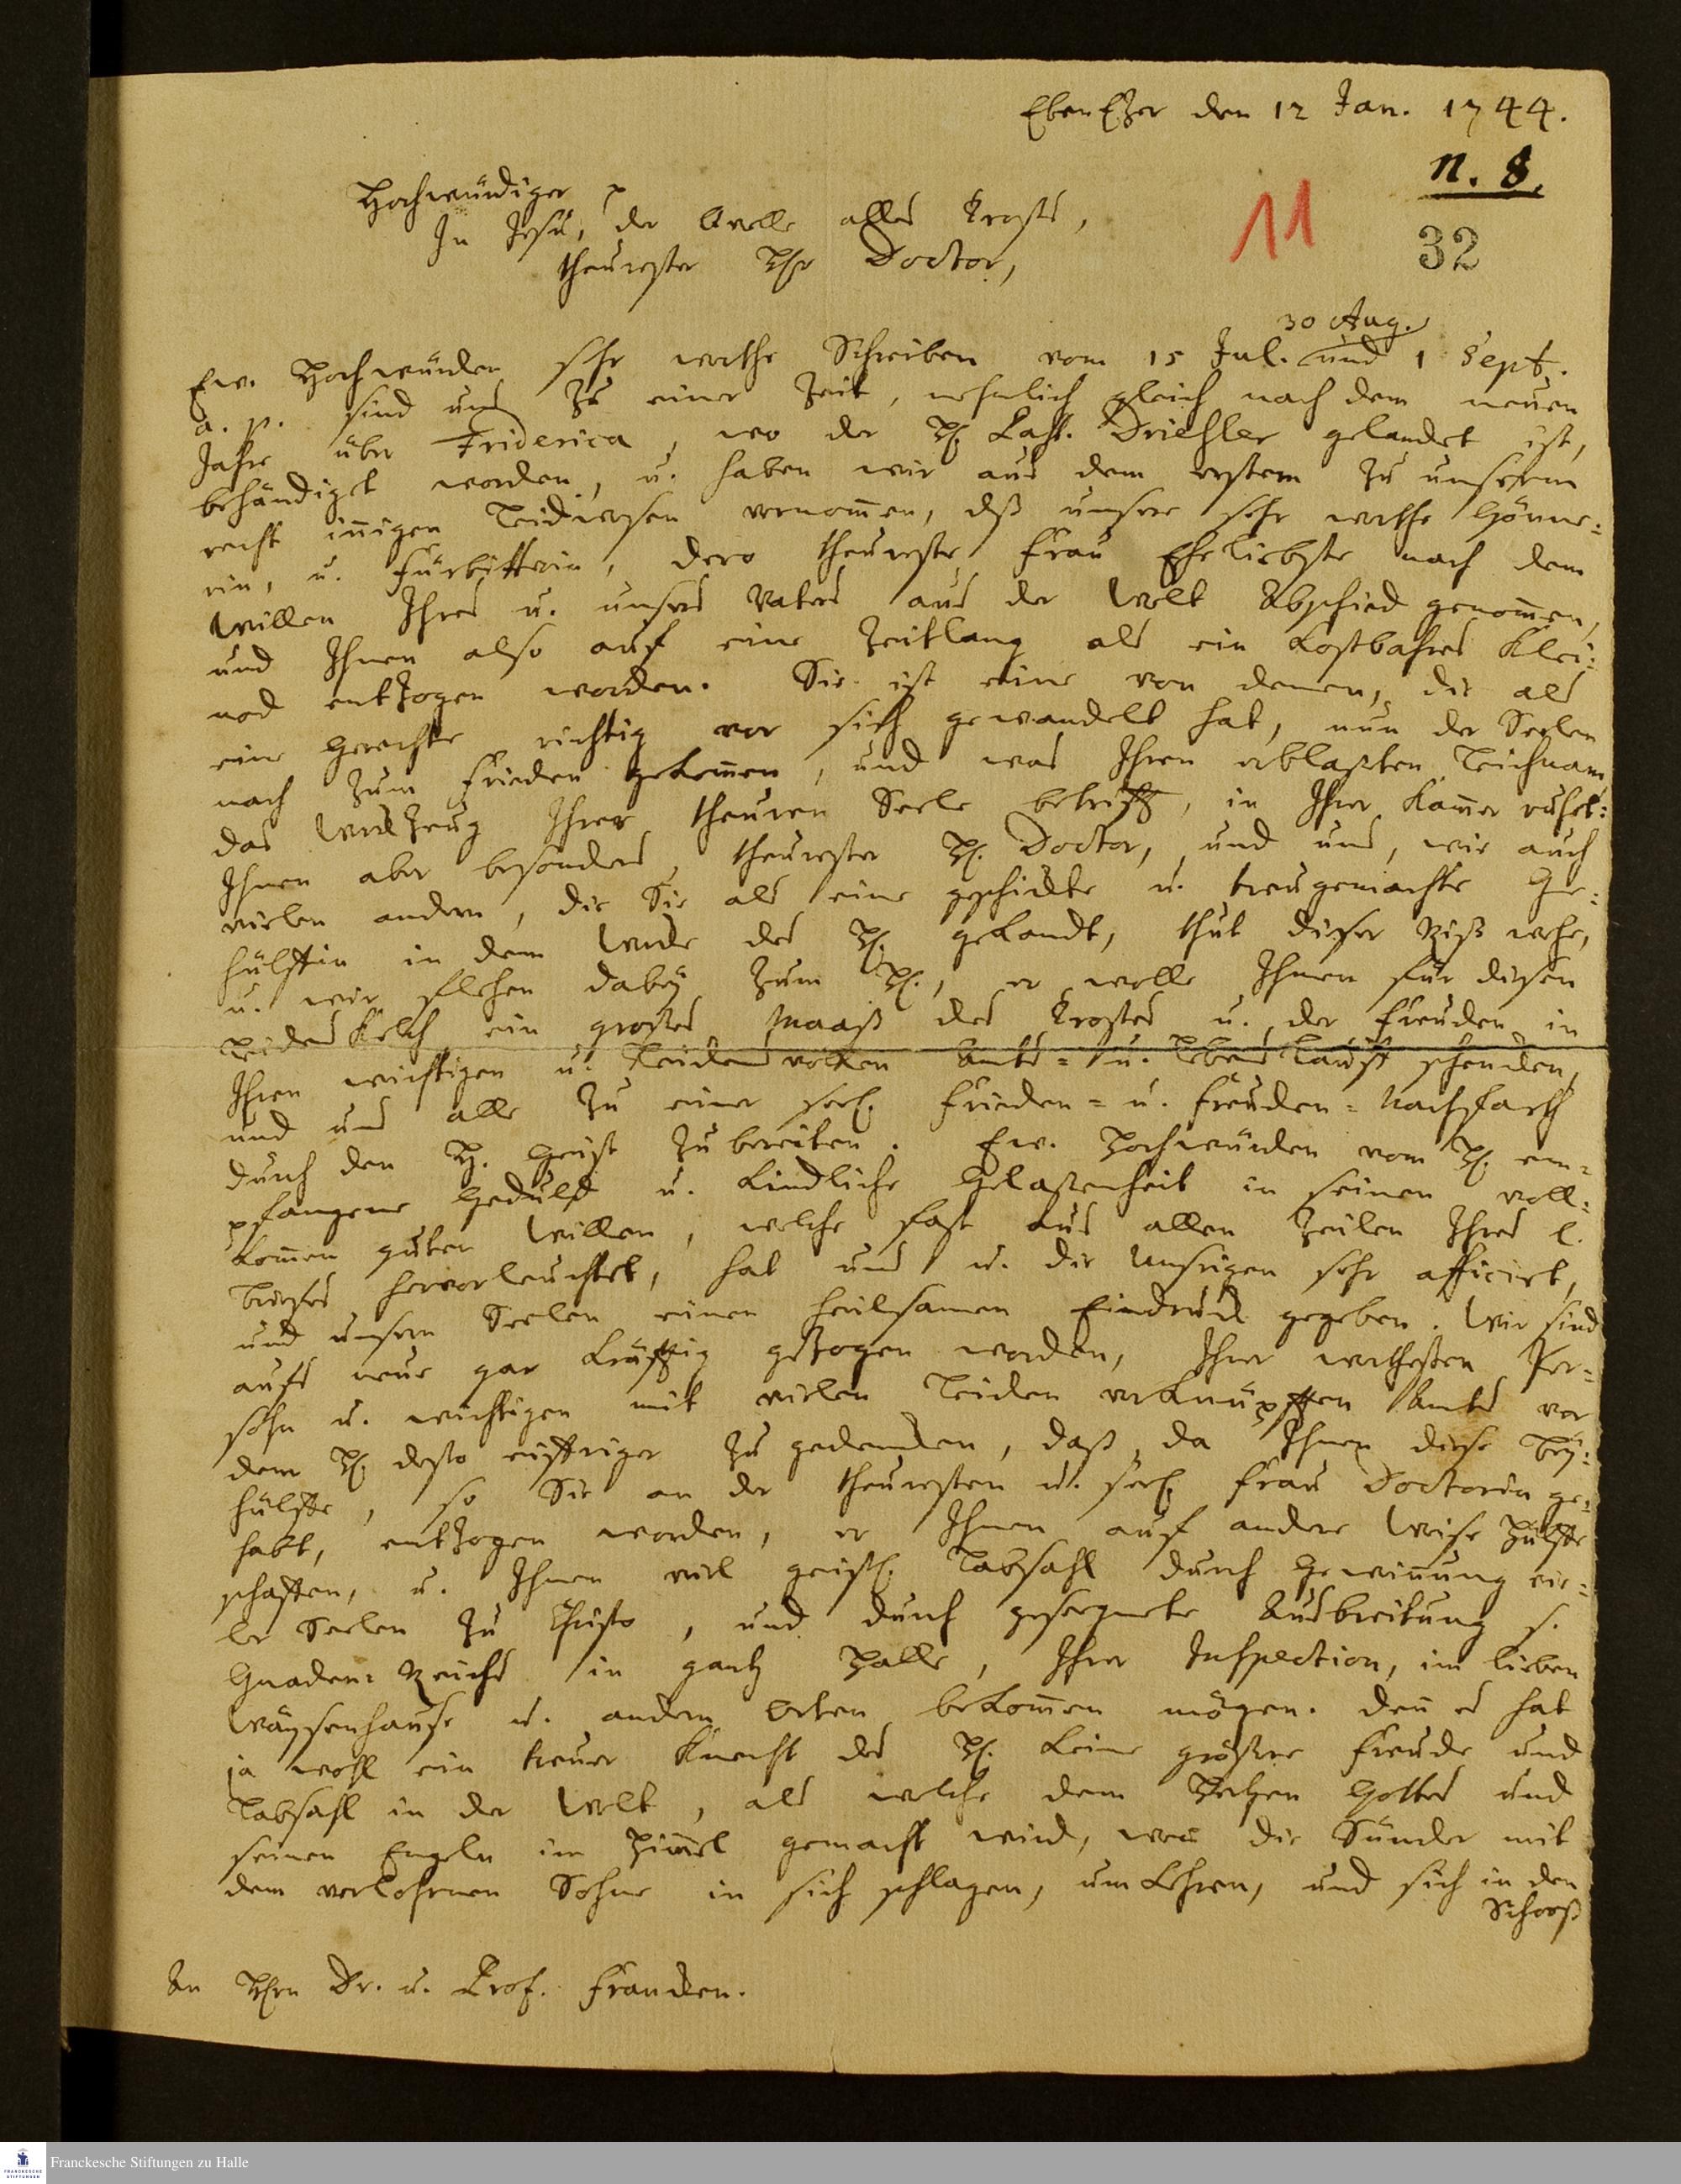 EbenEzer den 12 Jan. 1744.
n. 8.
11
32
Hochwürdiger p
In Jesu, der Quelle alles Trosts,
theurester Hr Doctor,
30 Aug.
Ew. Hochwürden sehr werthe Schreiben vom 15 Jul. und 1 Sept.
a. p. sind uns zu einer Zeit, nehmlich gleich nach dem neuen
Jahre über Friderica, wo der H. Past. Driesler gelandet ist,
behändiget worden, u. haben wir aus dem erstern zu unserm
recht iñigen Leidwesen vernom̃en, dß unsere sehr werthe Gönne=
rin, u. Fürbitterin, dero theureste Frau Eheliebste nach dem
Willen Ihres u. unsers Vaters aus der Welt Abschied genom̃en,
und Ihnen also auf eine Zeitlang als ein kostbahres Klei=
nod entzogen worden. Sie ist eine von denen, die als
eine Gerechte richtig vor sich gewandelt hat, nun der Seelen
nach zum Frieden gekom̃en, und was Ihren erblaßten Leichnam
das Werkzeug Ihrer theuren Seele betrifft, in Ihrer Kam̃er ruhet:
Ihnen aber besonders, theurester H. Doctor, und uns, wie auch
vielen andern, die Sie als eine geschickte u. treugemachte Ge=
hülffin in dem Wercke des H. gekandt, thut dieser Riß wehe,
u. wir flehen dabey zum H., er wolle Ihnen für diesen
LeidensKelch ein großes Maaß des Trostes u. der Freuden in
Ihren wichtigen u. Leidensvollen Amts= u. Lebens Lauff schencken,
und uns alle zu einer seel. Frieden= u. Freuden=Nachfarth
durch den H. Geist zubereiten. Ew. Hochwürden vom H. em=
pfangene Gedult u. kindliche Gelaßenheit in seinen voll=
kom̃en guten Willen, welche fast aus allen Zeilen Ihres l.
Briefes hervorleuchtet, hat uns u. die Unsrigen sehr afficirt,
und unsern Seelen einen heilsamen Eindruck gegeben. Wir sind
aufs neue gar kräfftig gezogen worden, Ihrer werthesten Per=
sohn u. wichtigen mit vielen Leiden verknüpfften Amts vor
dem H. desto eiffriger zu gedencken, daß, da Ihnen diese Bey=
hülffe, so Sie an der theuresten u. seel. Frau Doctorin ge=
habt, entzogen worden, er Ihnen auf andere Weise Hülffe
schaffen, u. Ihnen viel geistl. Labsahl durch Gewiñung vie=
ler Seelen zu Christo, und durch gesegnete Ausbreitung s.
Gnaden=Reichs in gantz Halle, Ihrer Inspection, im lieben
Wäysenhause u. andern Orten bekom̃en mögen. Deñ es hat
ja wohl ein treuer Knecht des H. keine größere Freude und
Labsahl in der Welt, als welche dem Hertzen Gottes und
seinen Engeln im Him̃el gemacht wird, weñ die Sünder mit
dem verlohrnen Sohne in sich schlagen, umkehren, und sich in den
Schooß
An Hrn Dr. u. Prof. Francken.
FRANCKESCHE STIFTUNGEN
Franckesche Stiftungen zu Halle